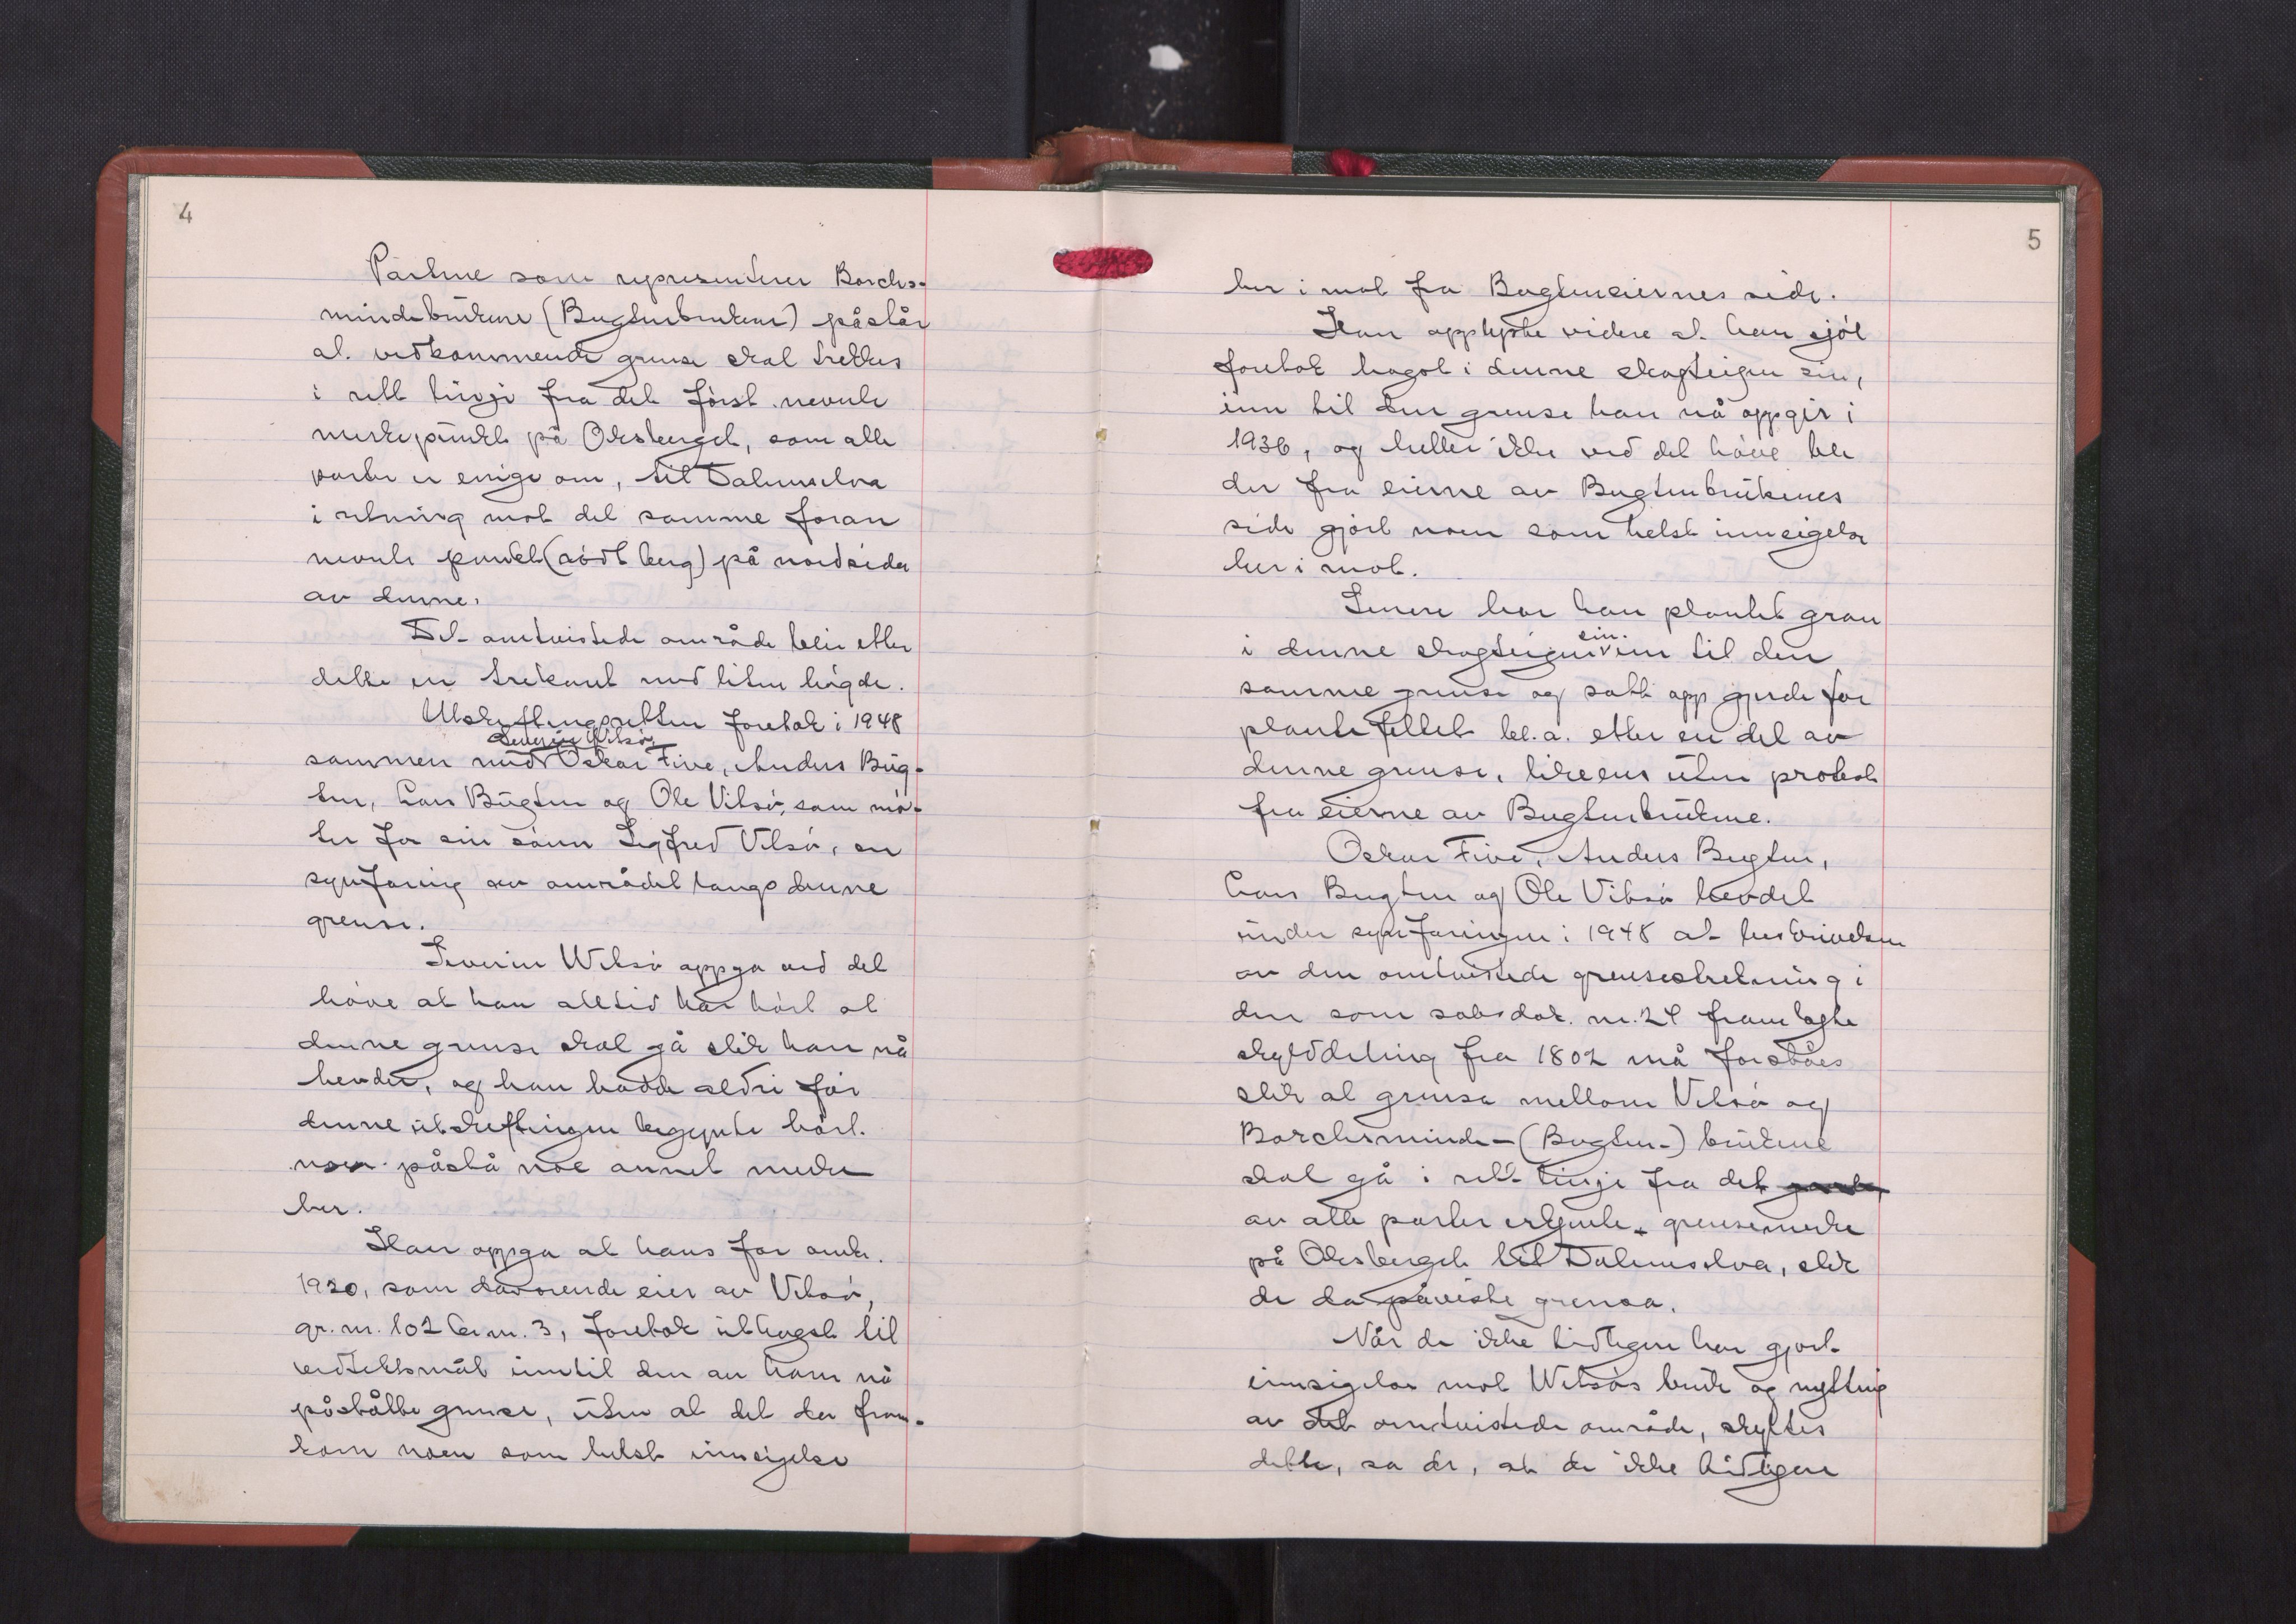 4
Partene som representerer Borchs-
mindebrukene (Bugtenbrukene) påstår
at vedkommende grense skal trekkes
i rett linje fra det først nevnte
merkepunkt på Oksberget, som alle
parter er enige om, til Dalemselva
i retning mot det samme foran
nevnte punkt (rødt berg) på nordsida
av denne.
Det omtvistede område blir etter
dette en trekant med liten høgde.
Utskiftingsretten foretok i 1948
Severin Vitsø,
sammen med Oskar Five, Anders Bug-
ten, Hans Bugten og Ole Vitsø, som mø-
ter for sin sønn Sigfred Vitsø, en
synfaring av området langs denne
grense.
Severin Witsø oppga ved det
høve at han alltid har hørt at
denne grense skal gå slik han nå
hevder, og han hadde aldri før
denne utskiftingen begynte hørt
noen påstå noe annet merke
her.
Han oppga at hans far omkr.
1920, som daværende eier av Vitsø,
gr.nr. 102 br.nr. 3, foretok uthogst til
vedteksmål inntil den av ham nå
påståtte grense, uten at det da fram-
kom noen som helst innsigelse
5
her i mot fra Bugteneiernes side.
Han opplyste videre at han sjøl
foretok hogst i denne skogteigen sin,
inn til den grense han nå oppgir i
1936, og heller ikke ved det høve ble
der fra eierne av Bugtenbrukenes
side gjort noen som helst innsigelse
her i mot.
Senere har han plantet gran
sin
i denne skogteigen inn til den
samme grense og satt opp gjerde for
plantefeltet bl.a. etter en del av
denne grense, likeens uten protest
fra eierne av Bugtenbrukene.
Oskar Five, Anders Bugten,
Hans Bugten og Ole Vitsø hevdet
under synfaringen i 1948 at beskrivelsen
av den omtvistede grensestrekning i
den som saksdok. nr. 24 framlagte
skylddeling fra 1802 må forståes
slik at grensa mellom Vitsø og
Borchsminde- (Bugten-) brukene
skal gå i rett linje fra det
av alle parter erkjente grensemerke
på Oksberget til Dalemselva, slik
de da påviste grensa.
Når de ikke tidligere har gjort
innsigelse mot Witsøs bruk og nytting
av det omtvistede område, skyltes
dette, sa de, at de ikke tidligere